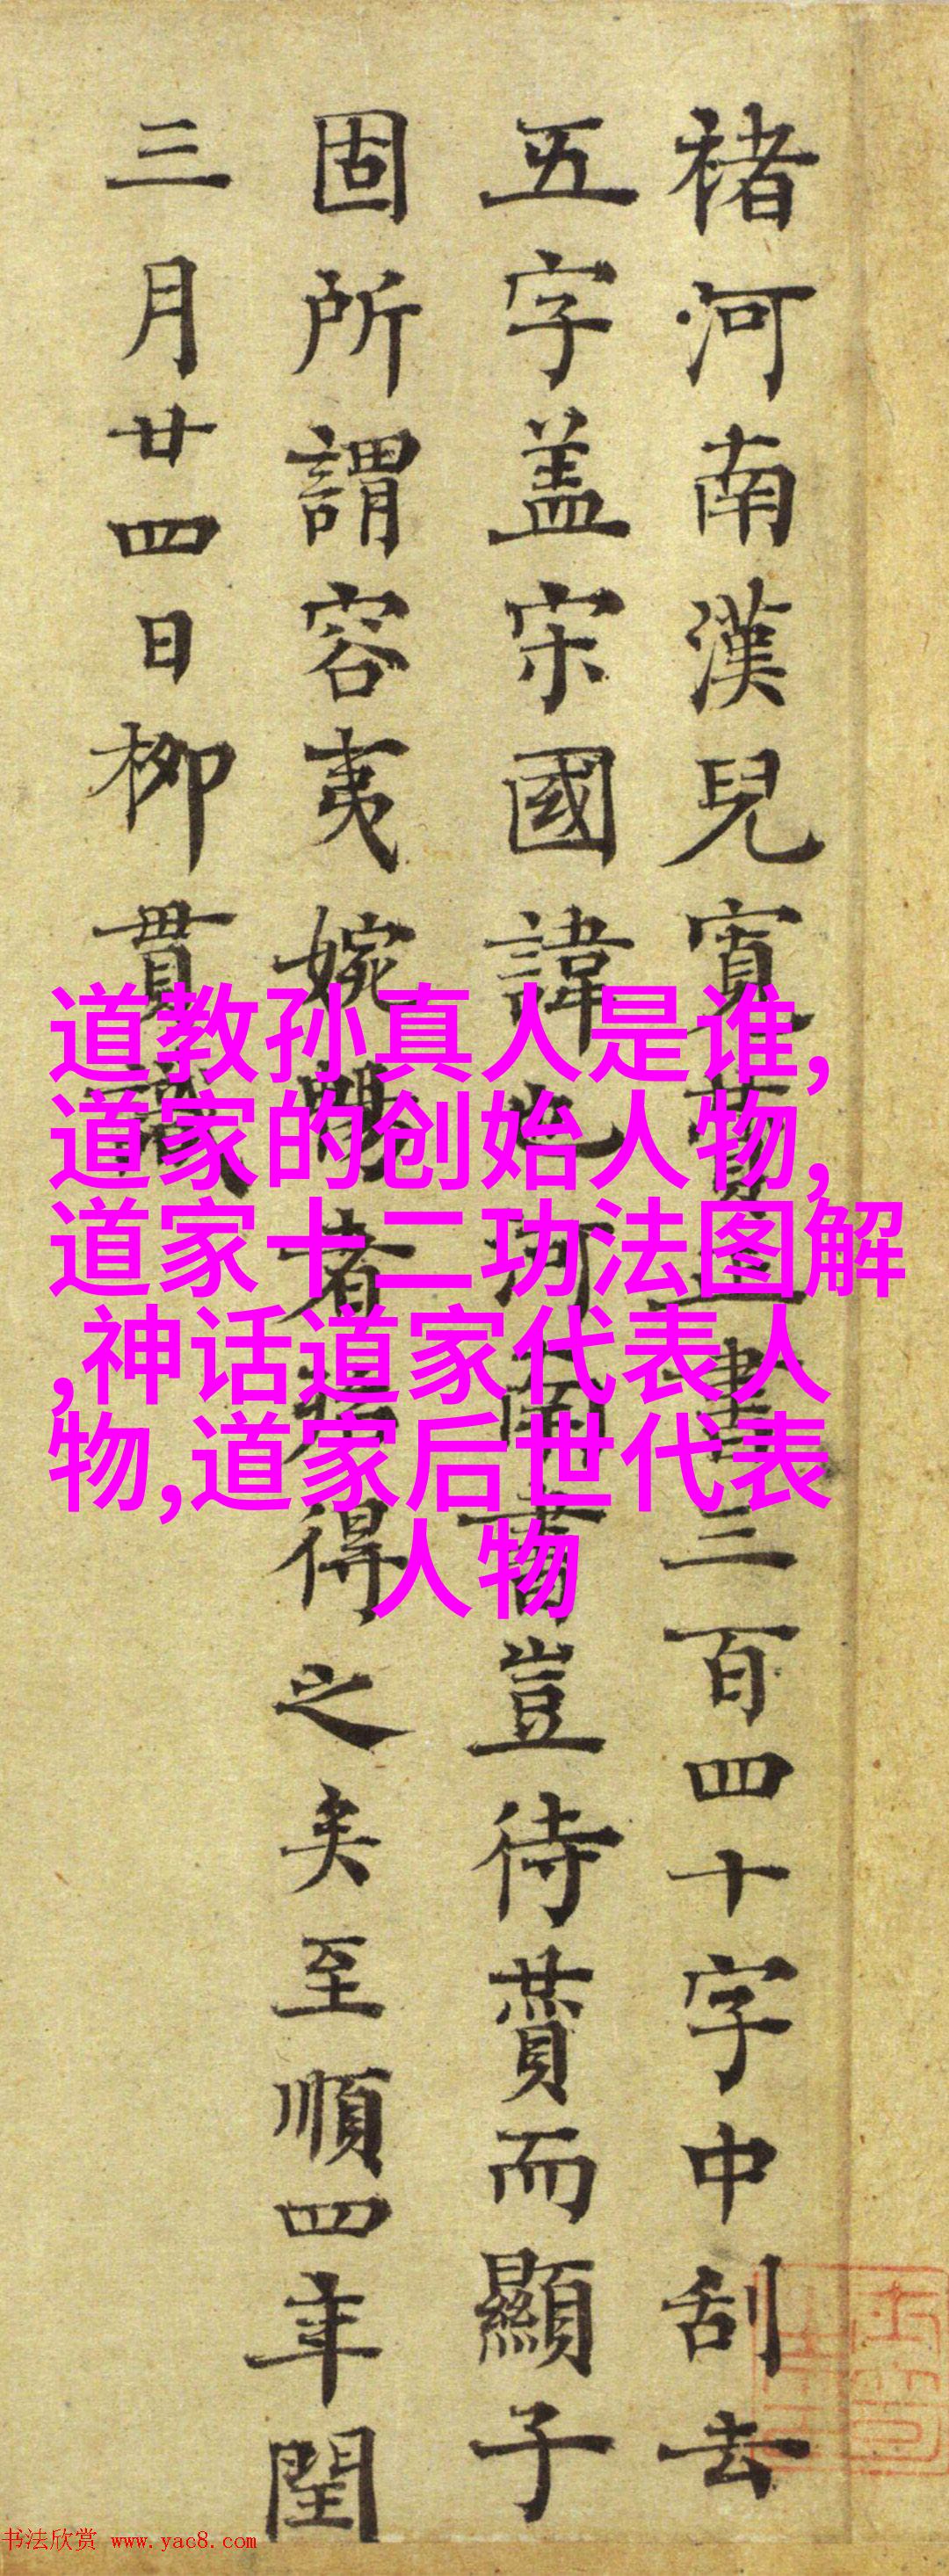 褚河南漢兒寬賛正書三百四十字中刮去
五字盖宋國諱也河南書豈待賛而顯子
固所謂容夷婉暢者得之矣至順四年閏
三月廿四日柳貫識
道教孙真人是谁,
道家的创始人物,
道家十二功法图解
,神话道家代表人
物,道家后世代表
人物
书法欣赏 www.yac8.com